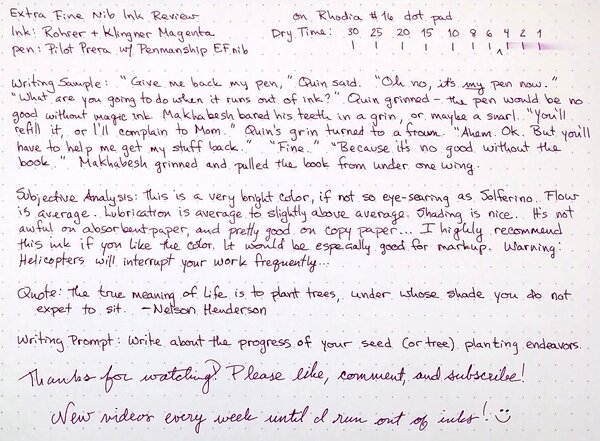 Extra Fine Nib Ink Review on Rhodia #16 dot pad
Ink: Rohrer + Klingner Magenta Dry Time: 30 25 20 15 10 8 6 4 2 1
pen: Pilot Prera w/ Penmanship EF nib
Writing Sample: "Give me back my pen," Quin said. "Oh no, it's my pen now."
"What are you going to do when it runs out of ink?" Quin grinned – the pen would be no
good without magic ink. Makhabesh bared his teeth in a grin, or maybe a snarl. "You'll
refill it, or I'll complain to Mom." Quin's grin turned to a frown. "Ahem. Ok. But you'll
have to help me get my stuff back." "Fine." "Because it's no good without the
book." Makhabesh grinned and pulled the book from under one wing.
Subjective Analysis: This is a very bright color, if not so eye-searing as Solferino. Flow
is average. Lubrication is average to slightly above average. Shading is nice. It's not
awful on absorbent paper, and pretty good on copy paper... I highly recommend
this ink if you like the color. It would be especially good for markup. Warning:
Helicopters will interrupt your work frequently...
Quote: The true meaning of life is to plant trees, under whose shade you do not
expet to sit. –Nelson Henderson
Writing Prompt: Write about the progress of your seed (or tree) planting endeavors.
Thanks for watching! Please like, comment, and subscribe!
New videos every week until I run out of inks! ☺